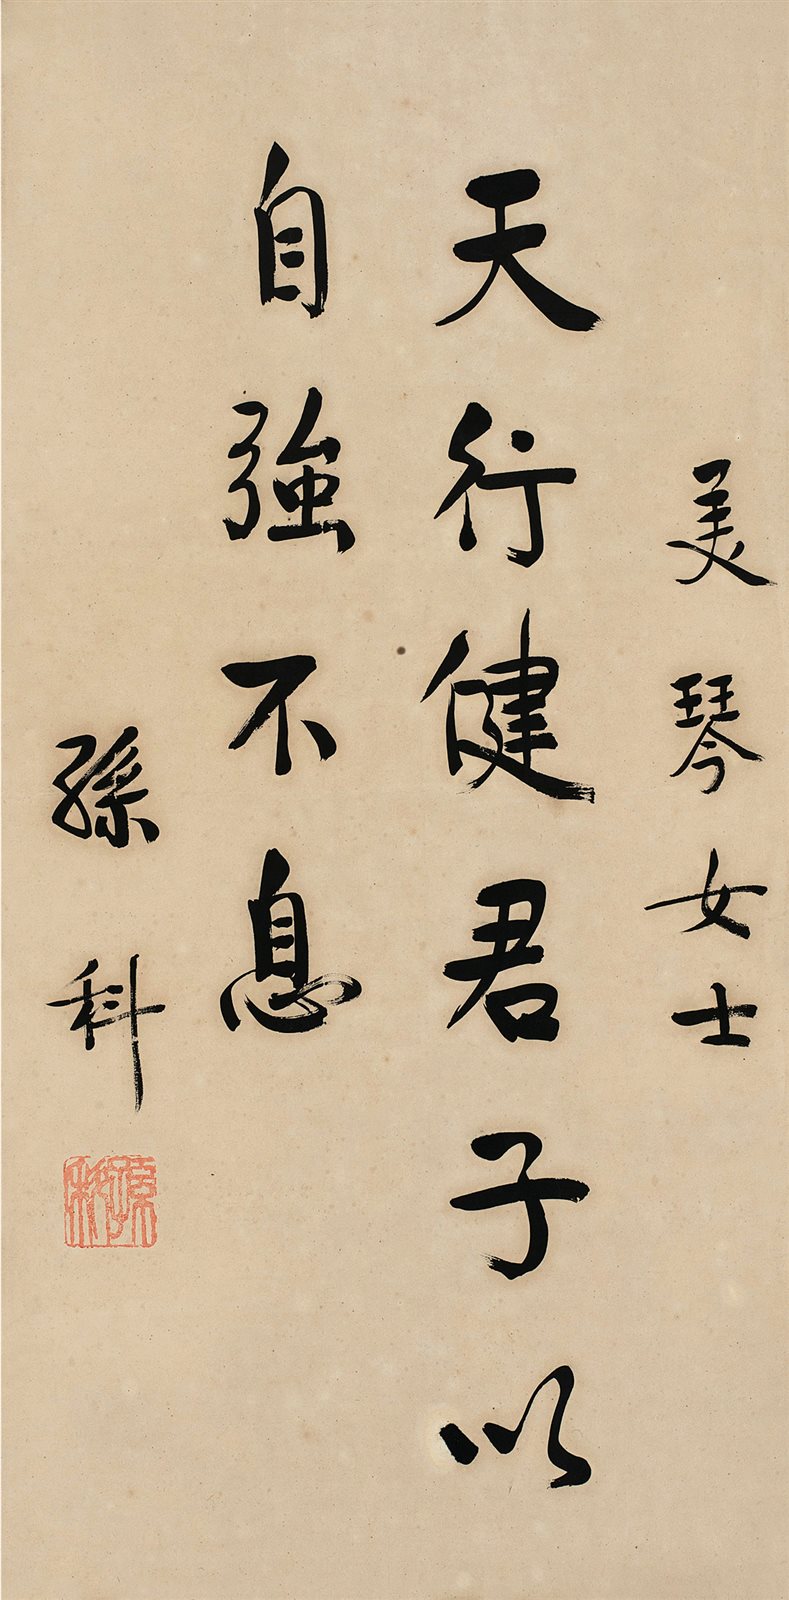 美琴女士
天行健君子以
自強不息
孫科
孫科